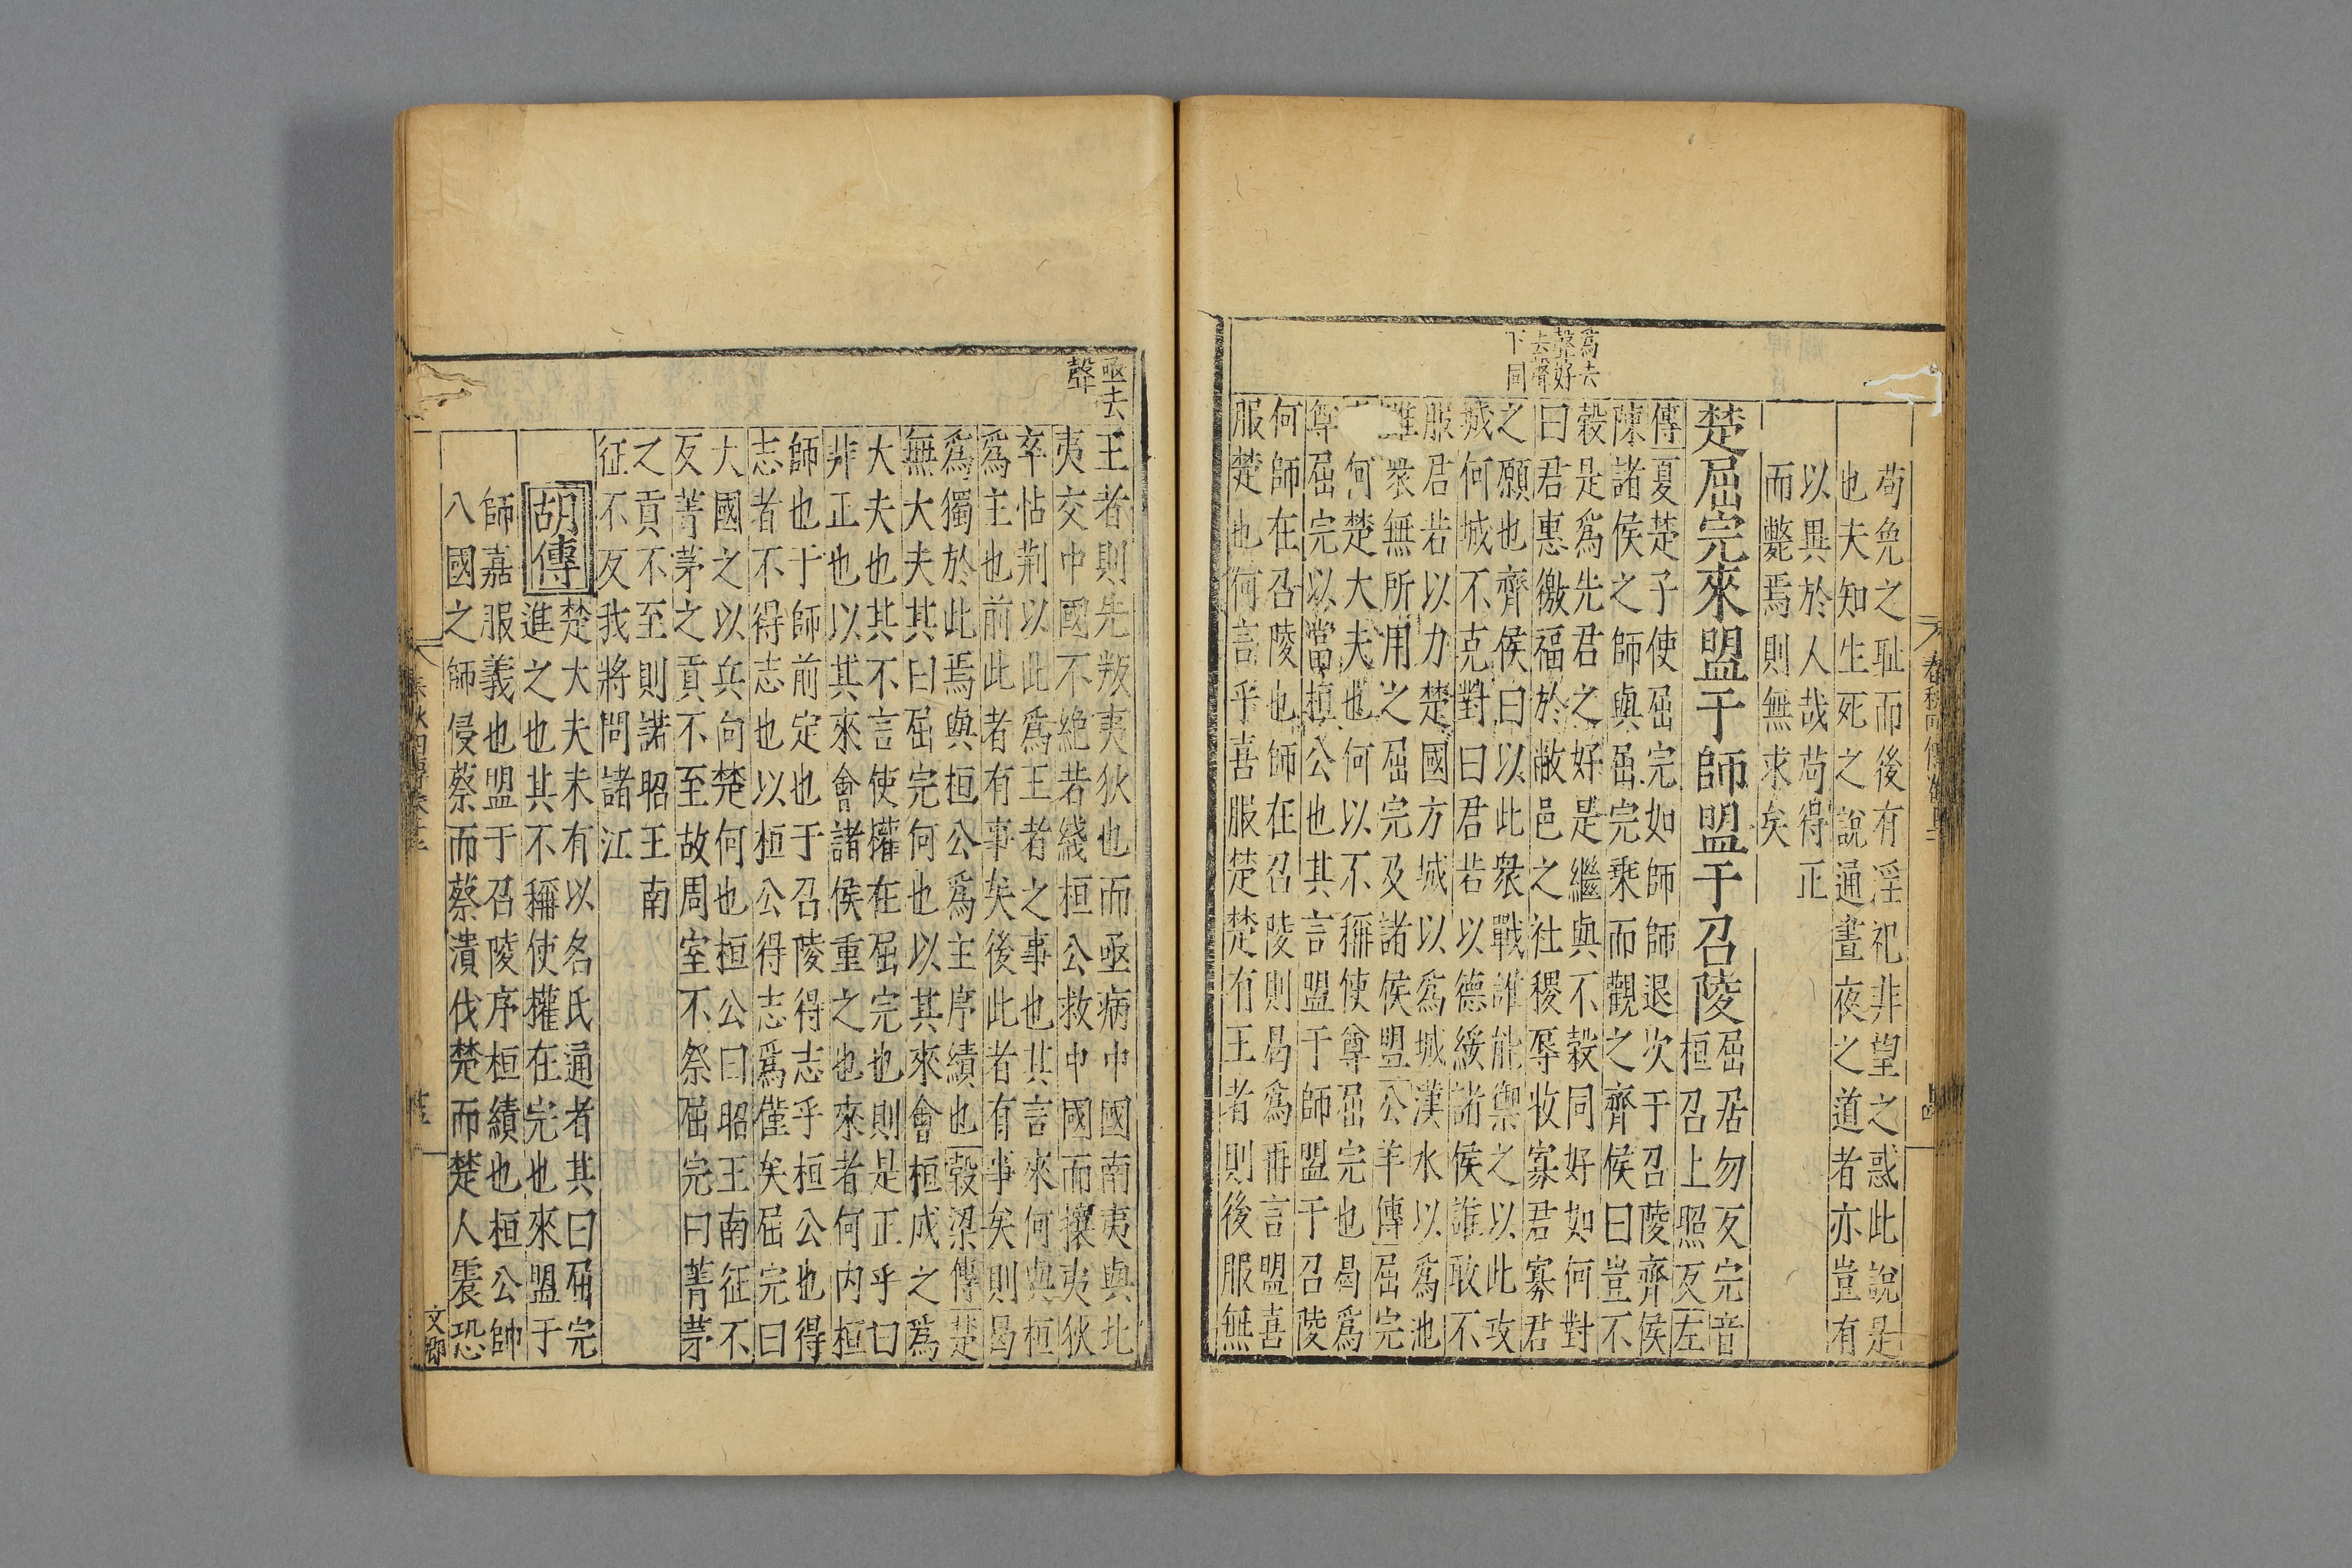 苟免之耻而後有淫祀非望之惑此說是
也夫知生死之說通晝夜之道者亦豈有
以異於人哉苟得正
而斃焉則無求矣
楚屈完來盟于師盟于召陵
屈居勿反完音
桓召上照反左
傳夏楚子使屈完如師師退次于召陵齊侯
陳諸侯之師與屈完乘而觀之齊侯曰豈不
穀是爲先君之好是繼與不穀同好如何對
曰君惠徼福於敝邑之社稷辱收寡君寡君
之願也齊侯曰以此衆戰誰能禦之以此攻
城何城不克對曰君若以德綏諸侯誰敢不
服君若以力楚國方城以爲城漢水以爲池
雖衆無所用之屈完及諸侯盟公羊傳屈完
何楚大夫也何以不稱使尊屈完也曷爲
尊屈完以當桓公也其言盟于師盟于召陵
何師在召陵也師在召陵則曷爲再言盟喜
服楚也何言乎喜服楚楚有王者則後服無
爲去
聲好
去聲
下同
王者則先叛夷狄也而亟病中國南夷與北
夷交中國不絶若綫桓公救中國而攘夷狄
卒怗荆以此爲王者之事也其言來何與桓
爲主也前此者有事矣後此者有事矣則曷
爲獨於此焉與桓公爲主序績也穀梁傳楚
無大夫其曰屈完何也以其來會桓成之爲
大夫也其不言使權在屈完也則是正乎曰
非正也以其來會諸侯重之也來者何内桓
師也于師前定也于召陵得志乎桓公也得
志者不得志也以桓公得志爲僅矣屈完曰
大國之以兵向楚何也桓公曰昭王南征不
反菁茅之貢不至故周室不祭屈完曰菁茅
之貢不至則諾昭王南
征不反我將問諸江
胡傳
楚大夫未有以名氏通者其曰屈完
進之也其不稱使權在完也來盟于
師嘉服義也盟于召陵序桓績也桓公帥
八國之師侵蔡而蔡潰伐楚而楚人震恐
亟去
聲
文卿